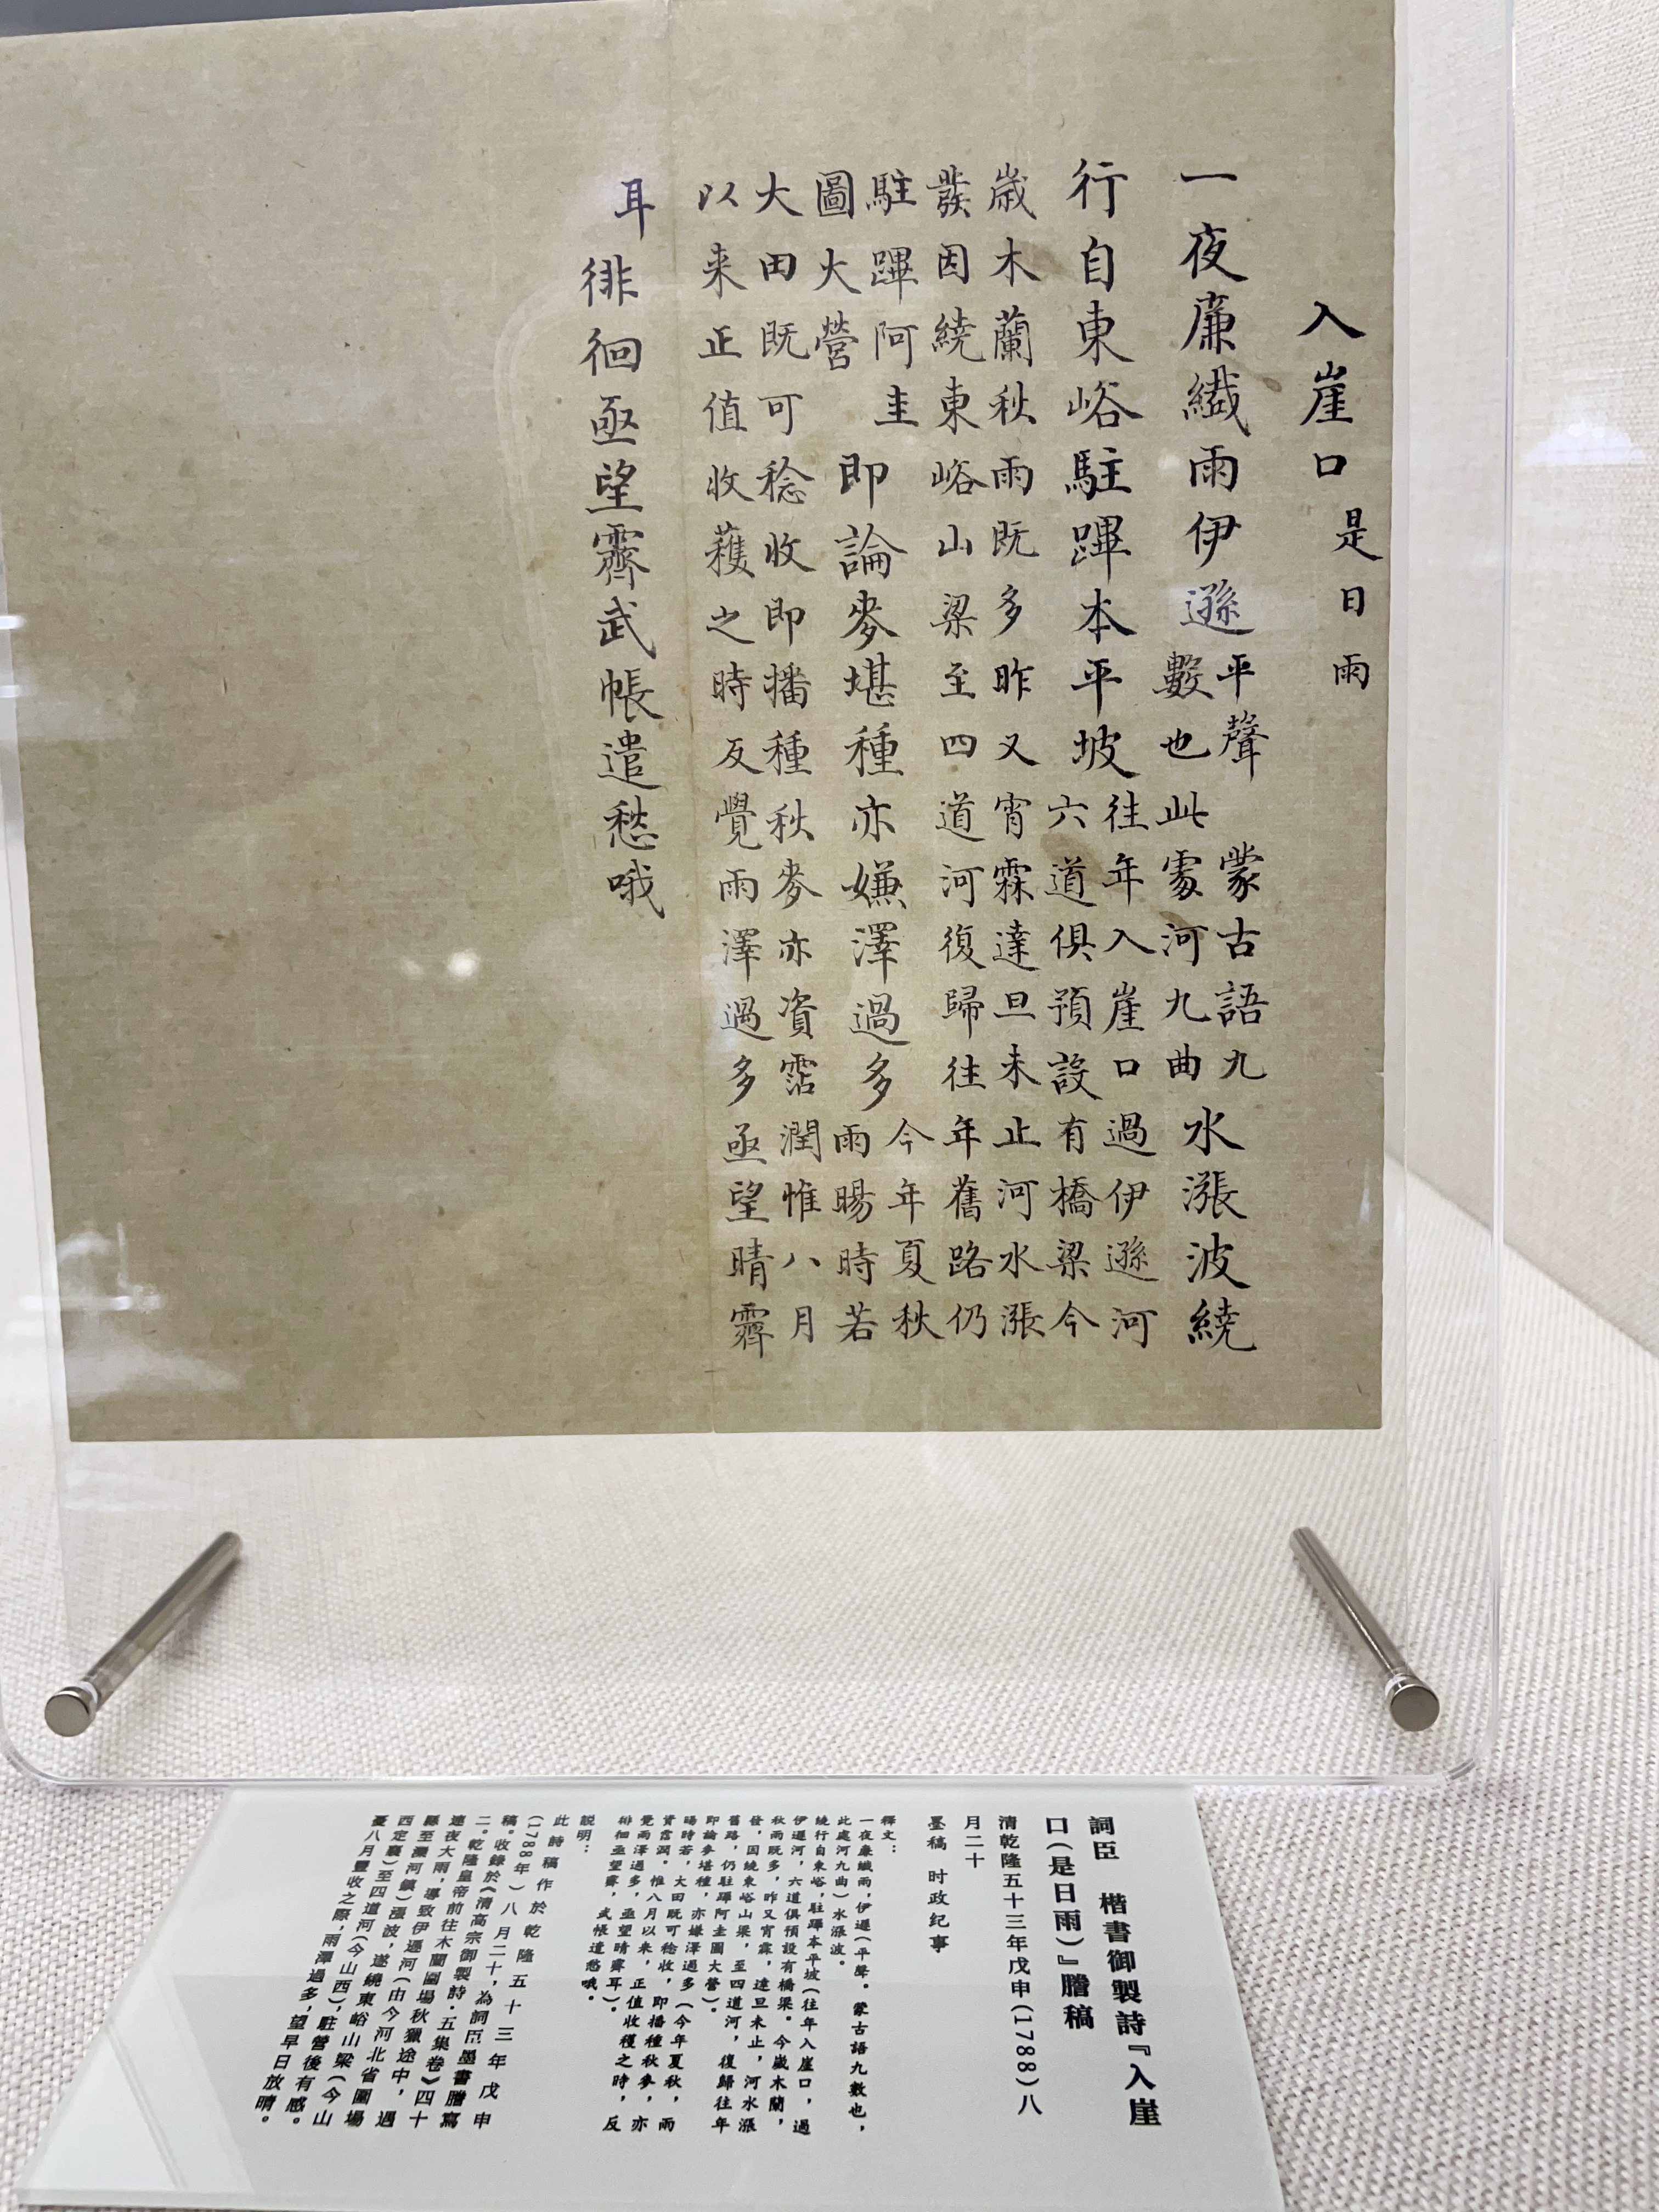 入崖口是日雨
一夜廉纖雨伊遜平聲蒙古語九
數也此處河九曲水漲波繞
行自東峪駐蹕本平坡往年入崖口過伊遜河
六道俱預設有橋梁今
歲木蘭秋雨既多昨又宵霖達旦未止河水漲
發因繞東峪山梁至四道河復歸往年舊路仍
駐蹕阿圭
圖大營即論麥堪種亦嫌澤過多今年夏秋
雨暘時若
大田既可稔收即播種秋麥亦資霑潤惟八月
以来正值收穫之時反覺雨澤過多亟望晴霽
耳徘徊亟望霽武帳遣愁哦
詞臣 楷書御製詩『入崖
口(是日雨)』謄稿
清乾隆五十三年戊申(1788)八
月二十
墨稿 时政纪事
釋文:
一夜廉纖雨,伊遜(平聲。蒙古語九數也,
此處河九曲)水漲波。
繞行自東峪,駐蹕本平坡(往年入崖口,過
伊遜河,六道俱預設有橋梁。今歲木蘭,
秋雨既多,昨又宵霖,達旦未止,河水漲
發,因繞東峪山梁,至四道河,復歸往年
舊路,仍駐蹕阿圭圖大營)。
即論麥堪種,亦嫌澤過多(今年夏秋,雨
暘時若,大田既可稔收,即播種秋麥,亦
資霑潤。惟八月以来,正值收穫之時,反
覺雨澤過多,亟望晴霽耳)。
徘徊亟望霽,武帳遣愁哦。
説明:
此詩稿作於乾隆五十三年戊申
(1788年)八月二十,為詞臣墨書謄寫
稿。收錄於《清高宗御製詩·五集卷》四十
二。乾隆皇帝前往木蘭圍場秋獵途中,遇
連夜大雨,導致伊遜河(由今河北省圍場
縣至灤河鎮)漲波,遂繞東峪山梁(今山
西定襄)至四道河(今山西),駐營後有感。
憂八月豐收之際,雨澤過多,望早日放晴。